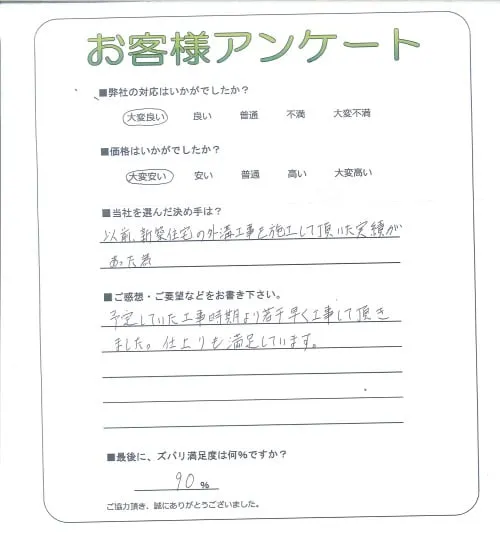 お客様アンケート
■弊社の対応はいかがでしたか？
大変良い 良い 普通 不満 大変不満
■価格はいかがでしたか？
大変安い 安い 普通 高い 大変高い
■当社を選んだ決め手は？
以前、新築住宅の外溝工事を施工して頂いた実績が
あった為
■ご感想・ご要望などをお書き下さい。
予定していた工事時期より若干早く工事して頂き
ました。仕上りも満足しています。
■最後に、ズバリ満足度は何%ですか？
90 %
ご協力頂き、誠にありがとうございました。